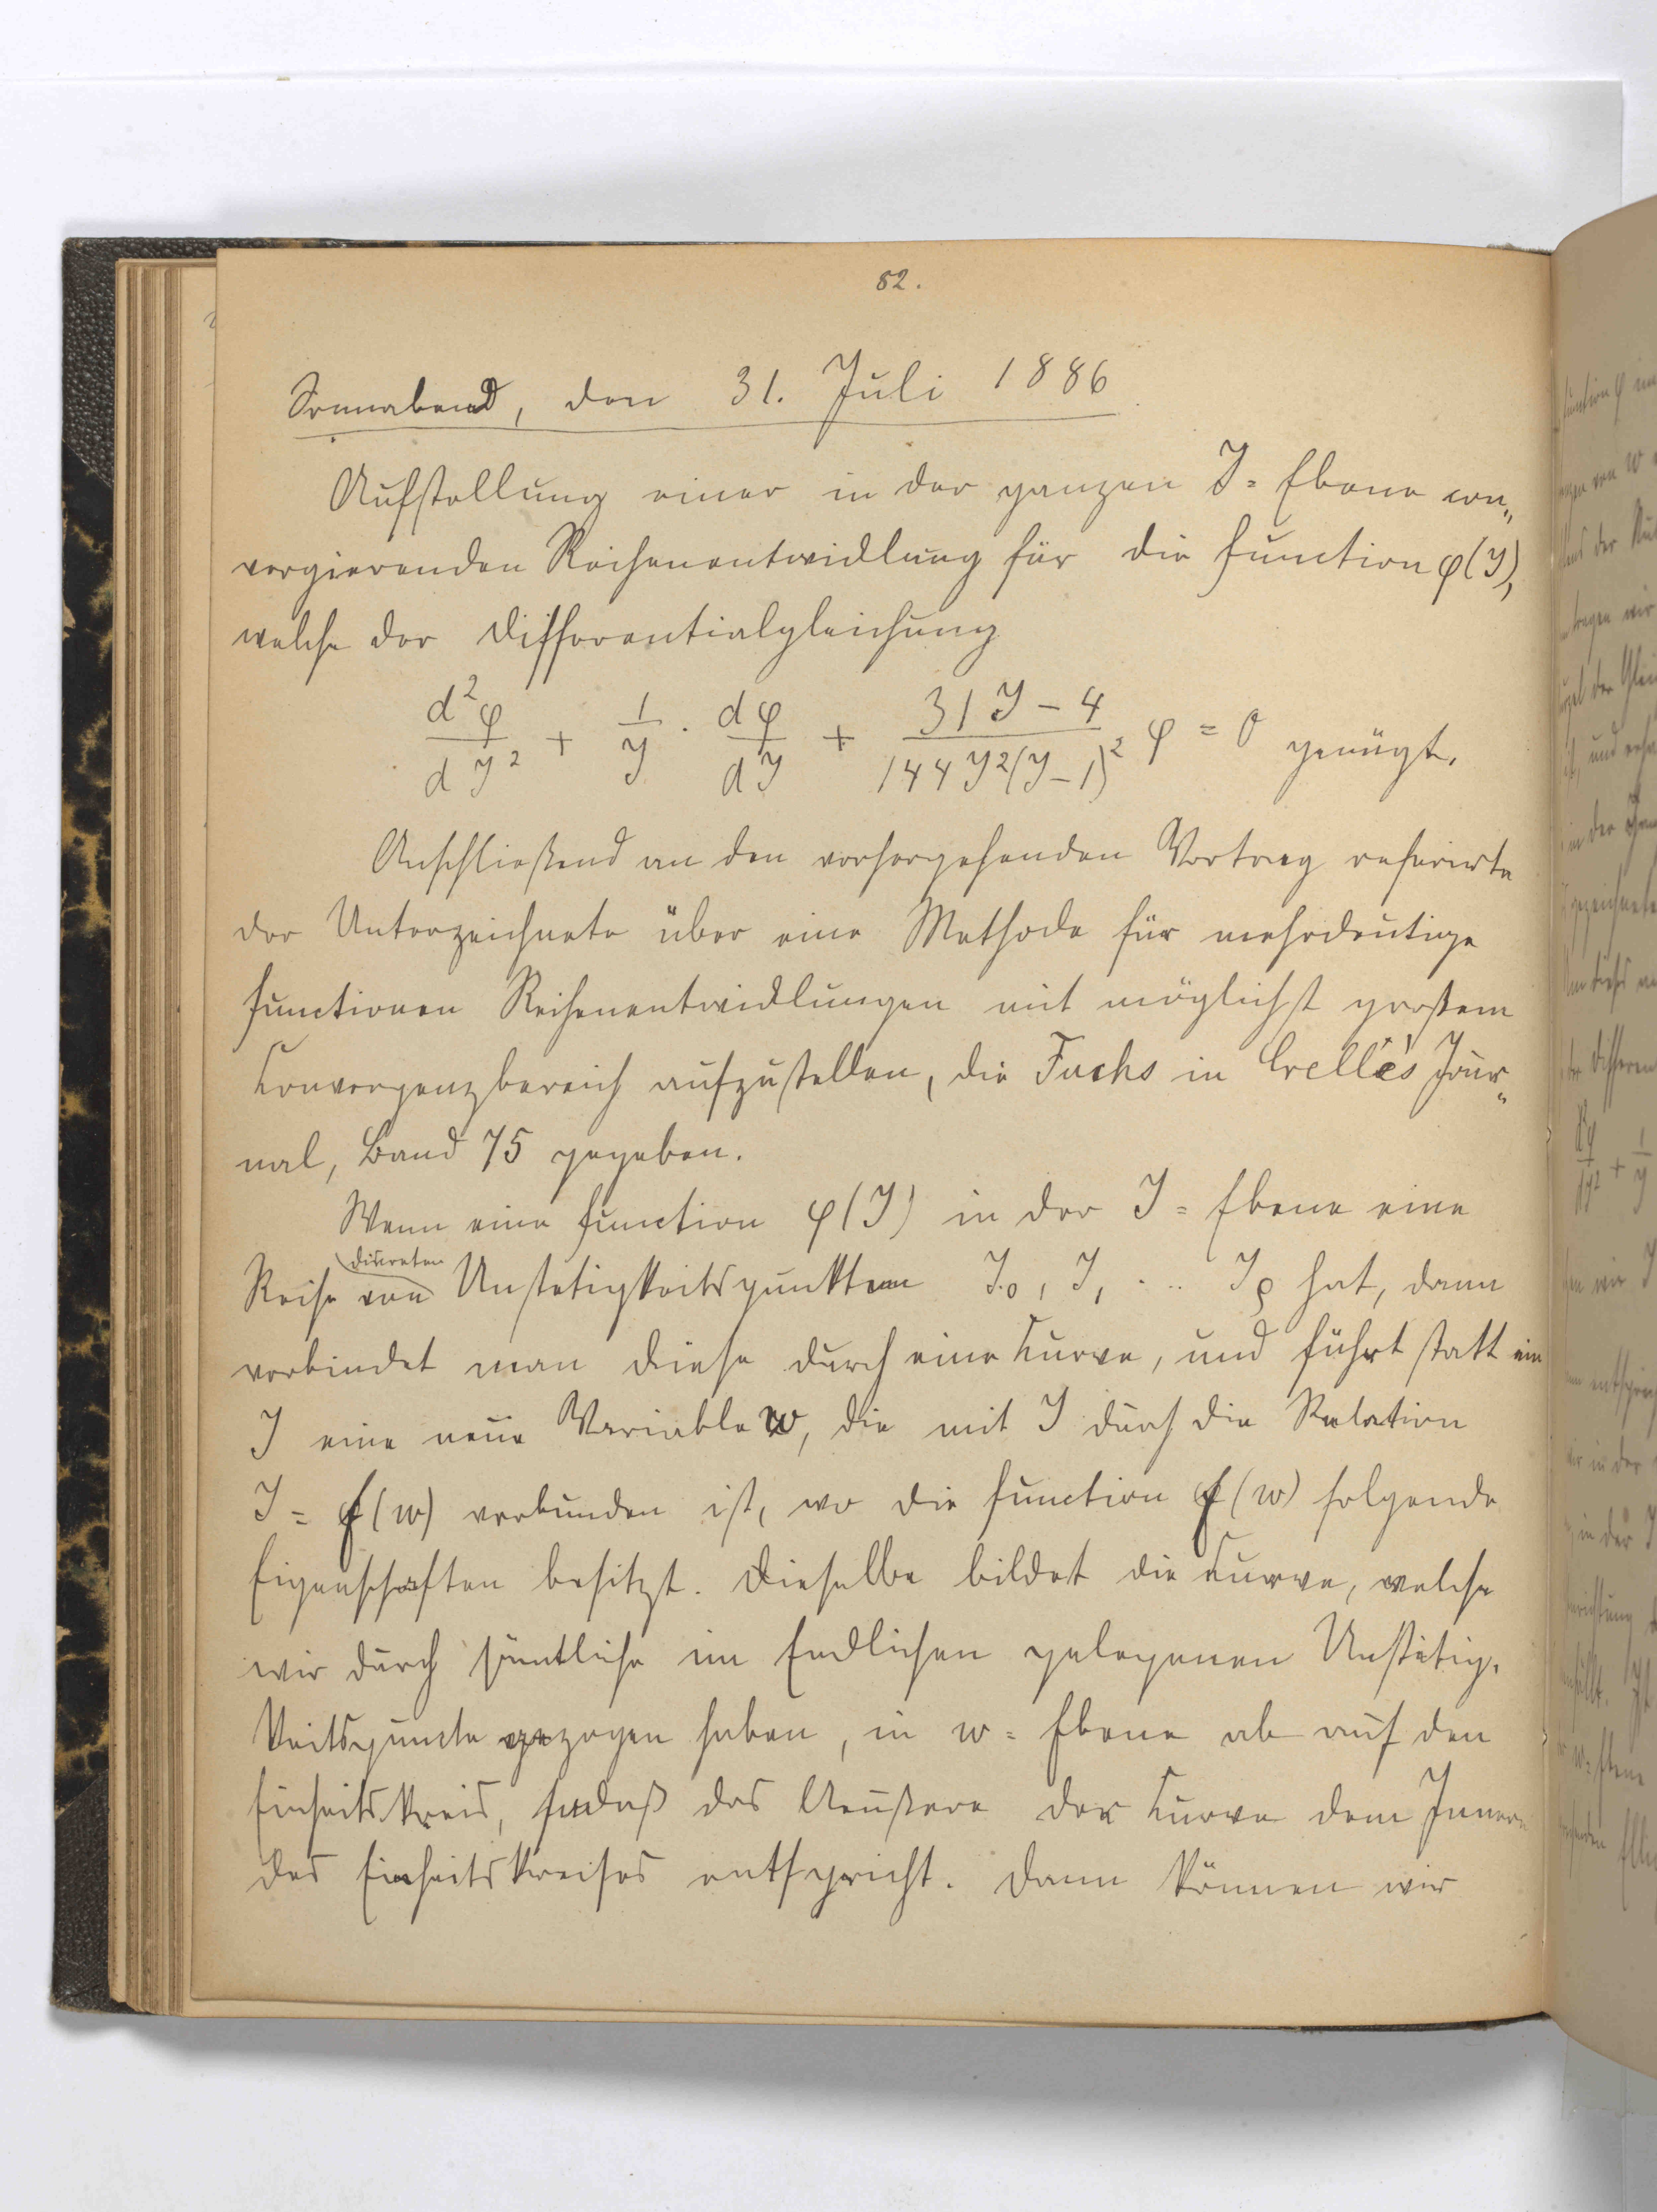 82.
Sonnabend, den 31. Juli 1886
Aufstellung einer in der ganzen J-Ebene con-
vergierenden Reihenentwicklung für die Function φ(J),
welche der Differentialgleichung
d²φ/dJ² + 1/J · dφ/dJ + (31J - 4)/(144 J²(J-1)²) φ = 0 genügt.
Anschließend an den vorhergehenden Vortrag referirte
der Unterzeichnete über eine Methode für mehrdeutige
Functionen Reihenentwicklungen mit möglichst großem
Convergenzbereich aufzustellen, die Fuchs in Crelle's Jour-
nal, Band 75 gegeben.
Wenn eine Function φ(J) in der J-Ebene eine
discreten
Reihe von Unstetigkeitspunkten J₀, J₁ ... Jρ hat, dann
verbindet man diese durch eine Curve, und führt statt
J eine neue Variable w, die mit J durch die Relation
J = f(w) verbunden ist, wo die Function f(w) folgende
Eigenschaften besitzt. Dieselbe bildet die Curve, welche
wir durch sämtliche im Endlichen gelegenen Unstetig-
keitspuncte gezogen haben, in w-Ebene ab auf den
Einheitskreis, sodaß das Aeußere der Curve dem Innern
des Einheitskreises entspricht. Dann können wir